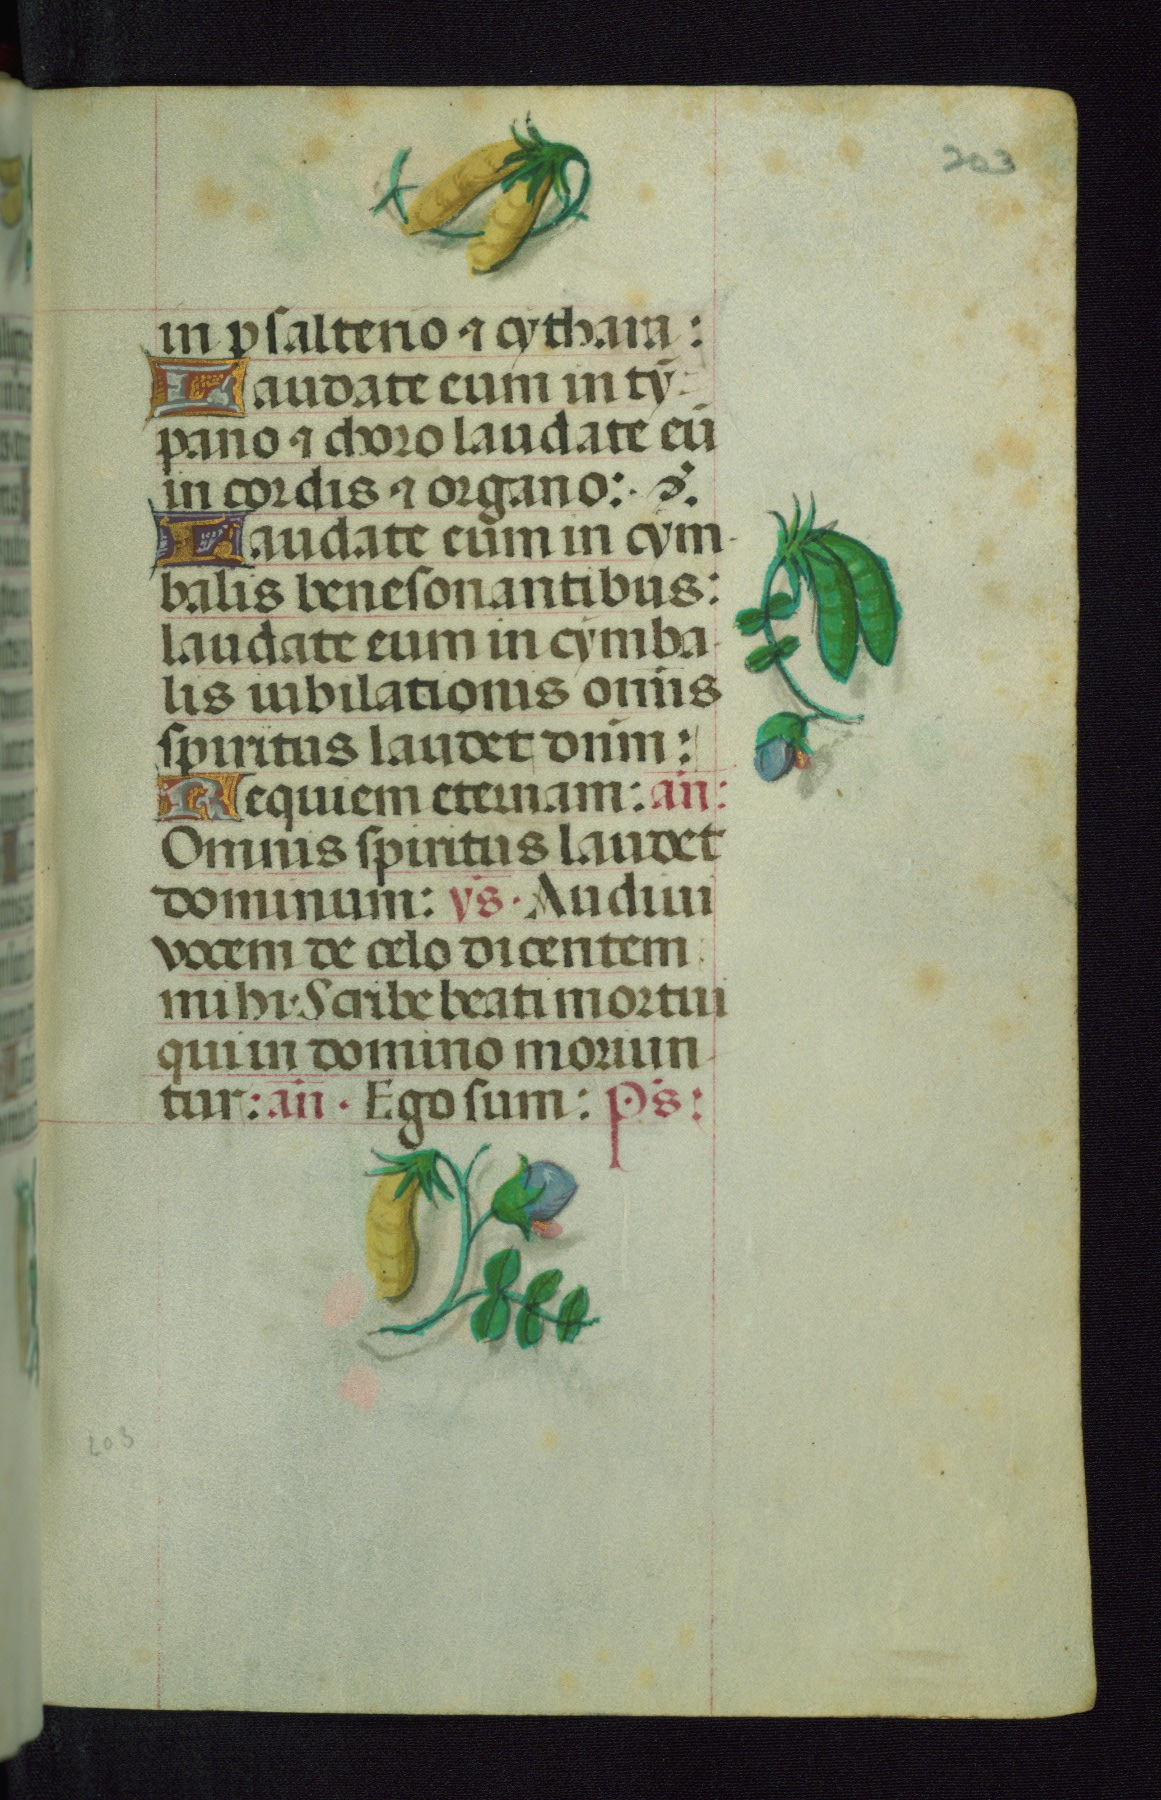 203
in psalterio ⁊ cythara :
Laudate eum in ty̅
pano ⁊ choro laudate eū
in cordis ⁊ organo:
Laudate eum in cym-
balis benesonantibus:
laudate eum in cymba-
lis iubilationis om̄is
spiritus laudet dn̄m :
Requiem eternam: an̄:
Omnis spiritus laudet
dominum: v̄s · Audiui
vocem de celo dicentem
mihi · Scribe beati mortui
qui in domino moriun-
tur: an̄ · Ego sum : P̄s:
203